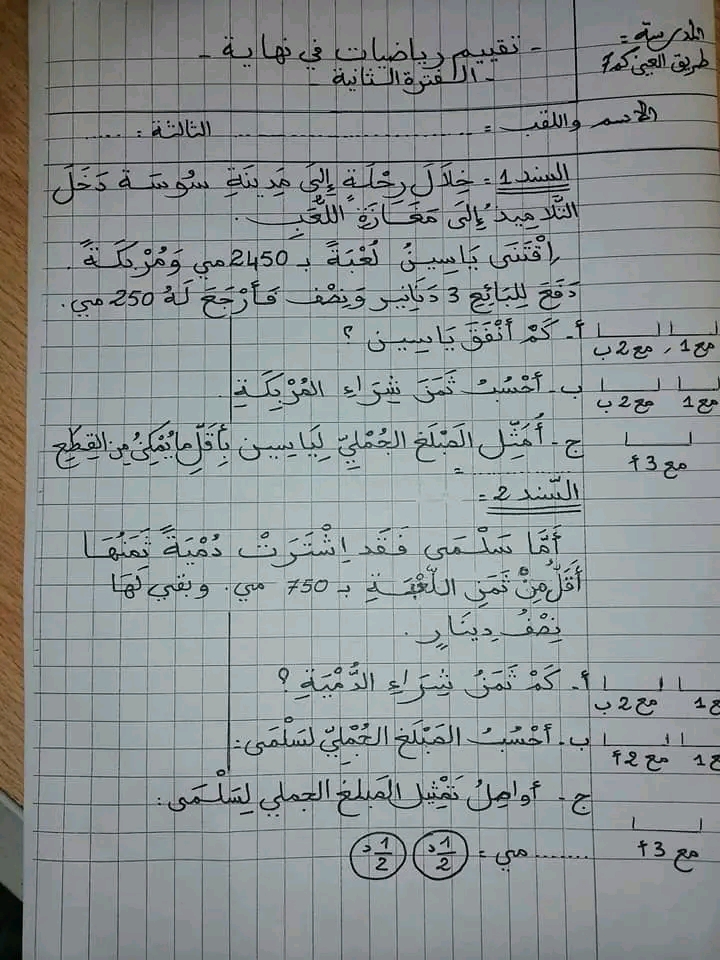 المدرسة:
طريق العين كم 7
- تقييم رياضيات في نهاية -
- الفترة الثانية -
الاسم واللقب = .................. الثالثة: ......
السند 1 = خِلَالَ رِحْلَةٍ إِلَى مَدِينَةِ سُوسَة دَخَلَ
التَّلَامِيذُ إِلَى مَغَازَةِ اللُّعَبِ.
اِقْتَنَى يَاسِينُ لُعْبَةً بـ 2450 مي وَمُرْبِكَةً.
دَفَعَ لِلبَائِعِ 3 دَنَانِير وَنِصْف فَأَرْجَعَ لَهُ 250 مي.
أ- كَمْ أَنْفَقَ يَاسِين ؟
مع 1 مع 2 ب
ب- أَحْسُبُ ثَمَنَ شِرَاءِ المُرْبِكَةِ.
مع 1 مع 2 ب
ج- أُمَثِّل المَبْلَغ الجُمْلِيّ لِيَاسِين بِأَقَلِّ مَا يُمْكِنُ مِنَ القِطَعِ
مع 3 أ
= ..............
السّند 2 =
أَمَّا سَلْمَى فَقَد اِشْتَرَتْ دُمْيَةً ثَمَنُهَا
أَقَلُّ مِنْ ثَمَنِ اللُّعْبَةِ بـ 750 مي. وبقي لَهَا
نِصْفُ دِينَارٍ.
أ- كَمْ ثَمَنُ شِرَاءِ الدُّمْيَةِ ؟
مع 1 مع 2 ب
ب- أَحْسُبُ المَبْلَغ الجُمْلِيّ لسَلْمَى:
مع 1 مع 2 أ
ج- أواصِلُ تَمْثِيل المَبلغ الجملي لِسَلْمَى:
مع 3 أ
(1/2 د) (1/2 د) = ........ مي